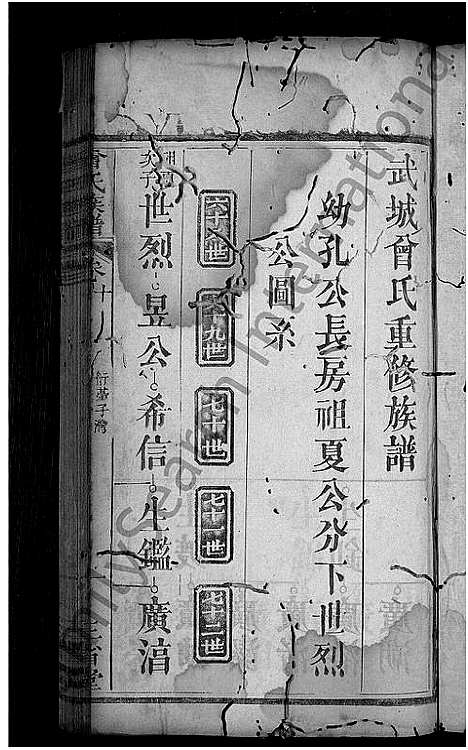 武城曾氏重修族譜
幼孔公長房祖夏公分下世烈
公圖系
六十八世
六十九世
七十世
七十一世
七十二世
世烈 昱公 希信 生鑑 廣湇
曾氏族譜
FamilySearch International